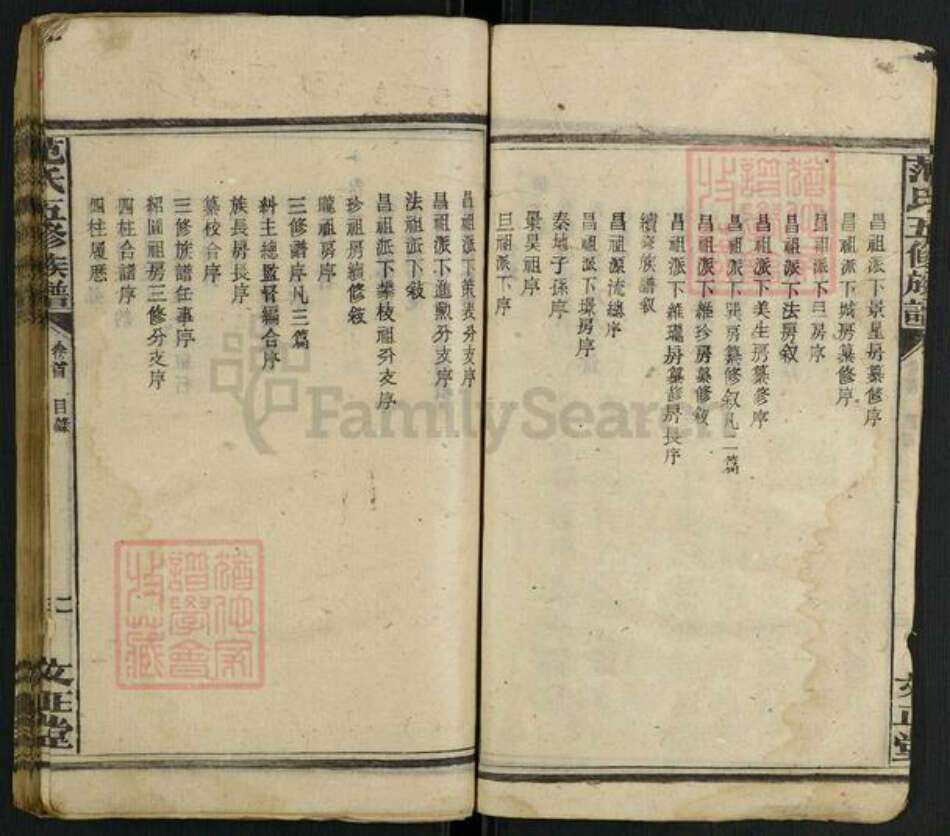 范氏五修族譜
文正堂
昌祖派下景星房纂修序
昌祖派下城房纂修序
昌祖派下曰房序
昌祖派下法房敘
昌祖派下美生房纂修序
昌祖派下巽房纂修敘凡二篇
昌祖派下維珍房纂修敘
昌祖派下維瓏房纂修房長序
續修族譜敘
昌祖源流總序
昌祖派下環房序
秦墟子孫序
杲昊祖序
曰祖派下序
昌祖派下策裴分支序
昌祖派下進勳分支序
法祖派下敘
昌祖派下攀枝祖分支序
珍祖房續修敘
瓏祖房序
三修譜序凡三篇
糾主總監督編合序
族長房長序
纂校合序
三修族譜任事序
紹園祖房三修分支序
四柱合譜序
四柱履歷
范氏五修族譜
卷首 目錄
二
文正堂
收藏
譜學會
FamilySearch